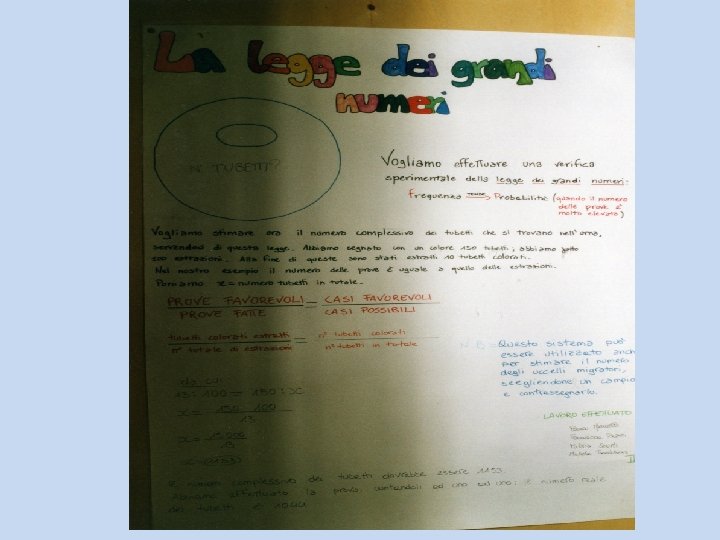 La legge dei grandi
numeri
N. TUBETTI?
Vogliamo effettuare una verifica
sperimentale della legge dei grandi numeri:
Frequenza tende Probabilità (quando il numero
delle prove è
molto elevato)
Vogliamo stimare ora il numero complessivo dei tubetti che si trovano nell'orna,
servendoci di questa legge. Abbiamo segnato con un colore 150 tubetti, abbiamo fatto
100 estrazioni. Alla fine di queste sono stati estratti 10 tubetti colorati.
Nel nostro esempio il numero delle prove è uguale a quello delle estrazioni.
Poniamo x = numero tubetti in totale.
PROVE FAVOREVOLI = CASI FAVOREVOLI
PROVE FATTE CASI POSSIBILI
tubetti colorati estratti = n° tubetti colorati
n° totale di estrazioni n° tubetti in totale
N.B = Questo sistema può
essere utilizzato anch
per stimare il numero
degli uccelli migratori,
scegliendone un campio
e contrassegnarlo.
da cui
13:100 = 150:x
x = 150 · 100
13
x = 15.000
13
LAVORO EFFETTUATO
Il numero complessivo dei tubetti dovrebbe essere 1153.
Abbiamo effettuato la prova, contandoli ad uno ad uno: il numero reale
dei tubetti è